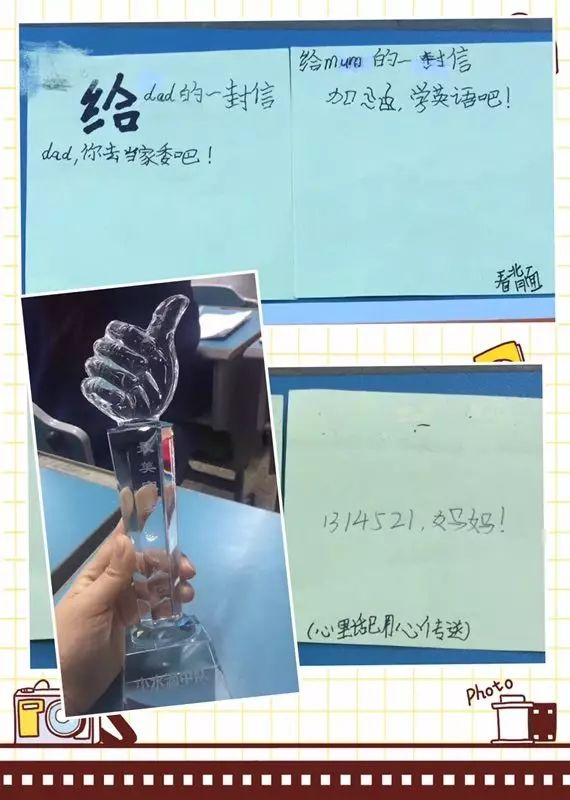 给dad的一封信
dad,你去当家委吧!
给mum的一封信
加油,学英语吧!
看背面
1314521,妈妈!
(心里话用心传送)
小水滴中队
photo